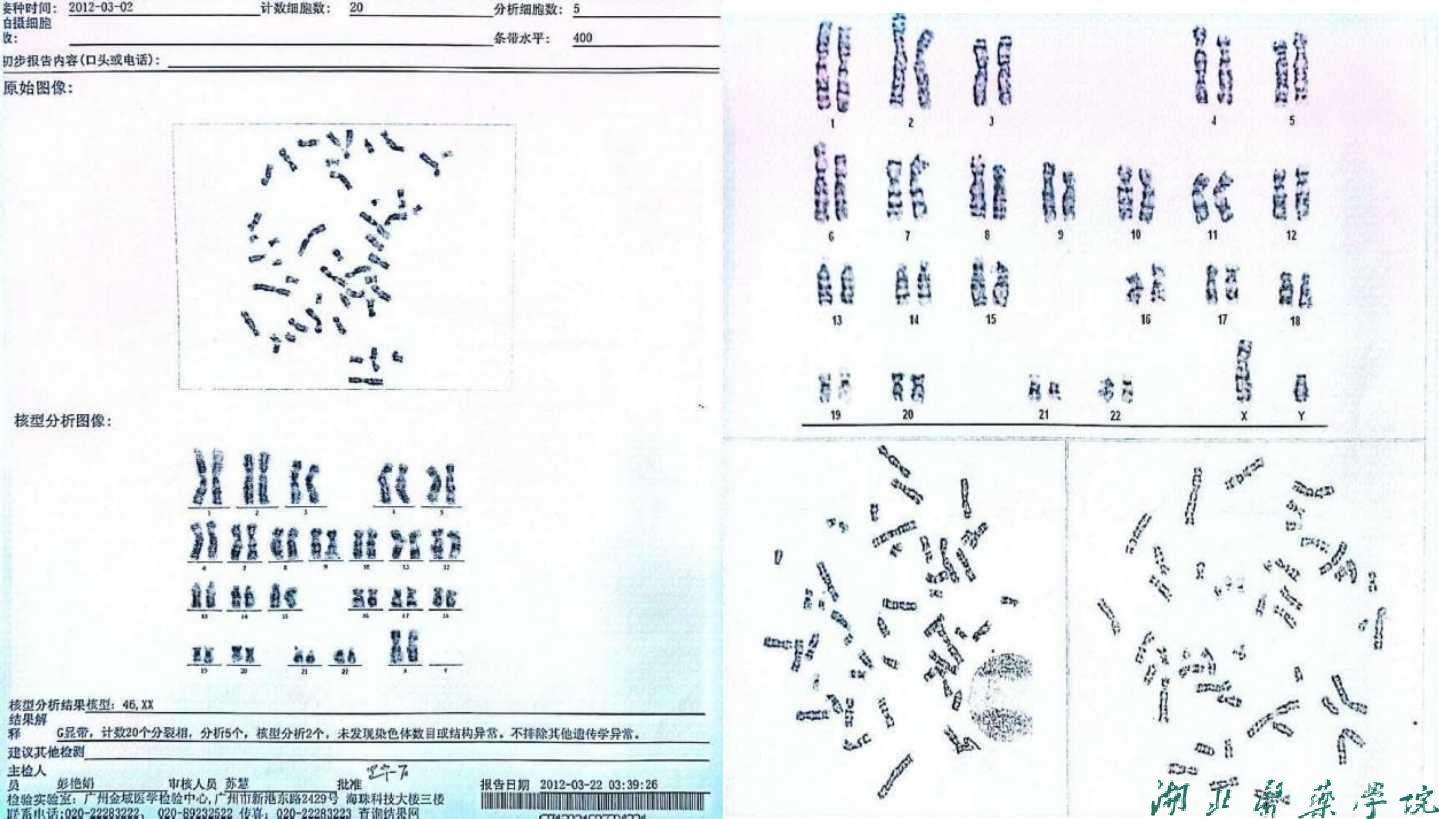 接种时间： 2012-03-02 计数细胞数： 20 分析细胞数： 5
拍摄细胞
数： 条带水平： 400
初步报告内容(口头或电话)：
原始图像：
核型分析图像：
1 2 3 4 5
6 7 8 9 10 11 12
13 14 15 16 17 18
19 20 21 22 X Y
核型分析结果核型： 46,XX
结果解
释 G显带，计数20个分裂相，分析5个，核型分析2个，未发现染色体数目或结构异常。不排除其他遗传学异常。
建议其他检测
主检人
员 彭艳娟 审核人员 苏慧 批准 报告日期 2012-03-22 03:39:26
检验实验室：广州金域医学检验中心,广州市新港东路2429号 海珠科技大楼三楼
联系电话:020-22283222， 020-89232522 传真： 020-22283223 查询结果网
1 2 3 4 5
6 7 8 9 10 11 12
13 14 15 16 17 18
19 20 21 22 X Y
湖北醫藥學院